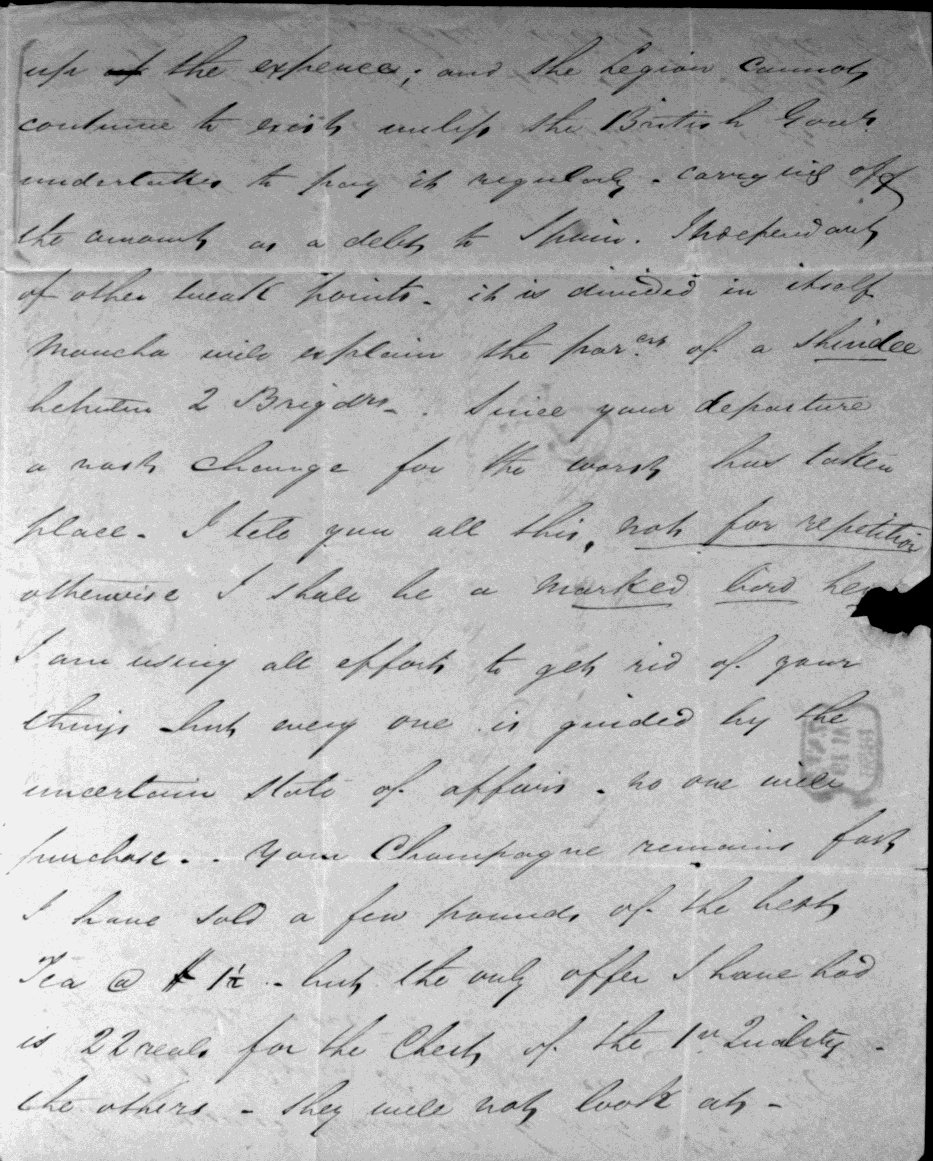 up of the expences; and the Legion cannot
continue to exist unless the British Govt.
undertakes to pay it regularly - carrying off
the amount as a debt to Spain. Independant
of other weak points - it is divided in itself
will explain the parers. of a shindee
between 2 Brigdrs. - Since your departure
a vast change for the worst has taken
place - I tell you all this, not for repetition
otherwise I shall be a marked bird here
I am using all efforts to get rid of your
things but every one is guided by the
uncertain state of affairs - no one will
purchase - . your Champagne remains fast
I have sold a few pounds of the best
Tea @ $ 1½ - but the only offer I have had
is 22 reals for the Chest of the 1st Quality -
the others - they will not look at -